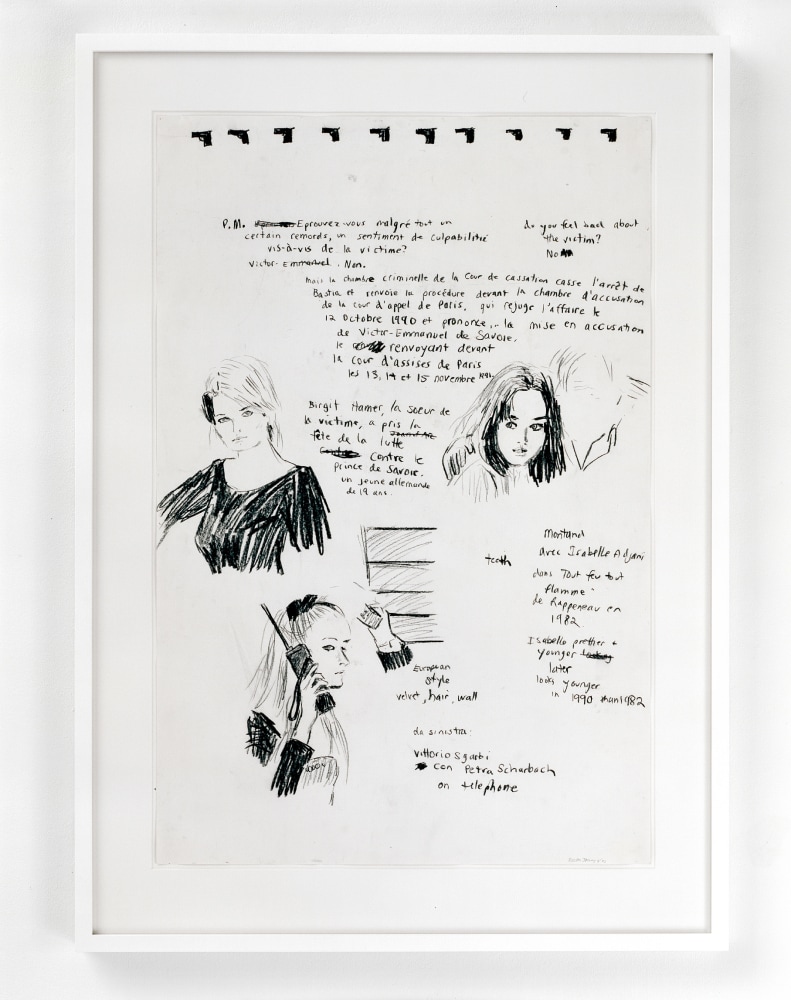 P.M. Eprouvez-vous malgré tout un
certain remords, un sentiment de culpabilité
vis-à-vis de la victime?
Victor-Emmanuel. Non.
do you feel bad about
the victim?
No
mais la chambre criminelle de la Cour de cassation casse l'arrêt de
Bastia et renvoie la procédure devant la chambre d'accusation
de la cour d'appel de Paris, qui rejuge l'affaire le
12 Octobre 1990 et prononce,.. la mise en accusation
de Victor-Emmanuel de Savoie,
le renvoyant devant
la cour d'assises de Paris
les 13, 14 et 15 novembre 1991.
Birgit Hamer, la soeur de
la victime, a pris la
tête de la lutte
contre le
prince de Savoie.
un jeune allemande
de 19 ans.
teeth
Montand
avec Isabelle Adjani
dans Tout feu tout
flamme
de Rappeneau en
1982
Isabelle prettier +
younger
later
looks younger
in 1990 than 1982
European
style
velvet, hair, wall
da sinistra:
Vittorio Sgarbi
con Petra Scharbach
on telephone